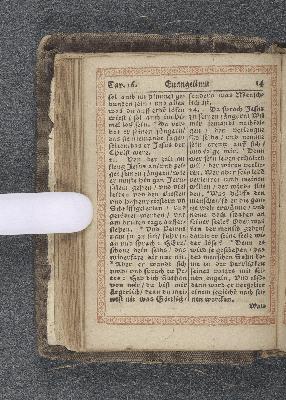 Cap. 16. Euangelium 14
sol auch im Himmel ge-
bunden sein / und alles
was du auff erden lösen
wirst / sol auch im Him-
mel los sein. Da ver-
bot er seinen Jüngern /
das sie niemand sagen
solten / das er Jesus der
Christ were.
Von der zeit an
fieng Jesus an / und zei-
get seinen Jüngern / wie
er müste hin gen Jeru-
salem gehen / und viel
leiden von den Eltesten
und Hohenpriestern und
Schrifftgelerten / und
getödtet werden / und
am dritten tage auffer-
stehen. Und Petrus
nam zu sich / fuhr in
an / und sprach / HErr /
schone dein selbs / das
widerfare dir nur nit.
Aber er wande sich
umb / und sprach zu Pe-
tro / Heb dich Sathan
von mir / du bist mir
ergerlich / denn du mei-
nest nit was Göttlich /
sondern was Mensch-
lich ist.
24. Da sprach Jesus
zu seinen Jüngern / Wil
mir jemand nachfol-
gen / der verleugne
sich selbs / und neme
sein creutz auff sich /
und folge mir. Denn
wer sein leben erhalten
wil / der wirds verlie-
ren. Wer aber sein leben
verleuret umb meinet
willen / der wirds fin-
den. Was hülffs den
menschen / so er die gan-
tze welt gewünne / und
neme doch schaden an
seiner seele? Oder was
kan der mensch geben /
damit er seine seele wi-
der löse? Denn es
wird je geschehen / das
des menschen Sohn ko-
me in der herrligkeit
seines vatters mit sei-
nen engeln. Und alsdenn
dann wird er vergelten
einem jeglichen nach sei-
nen wercken.